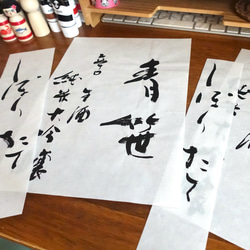 青笹
辛口
生酒
純米大吟醸
しぼりたて
しぼりたて